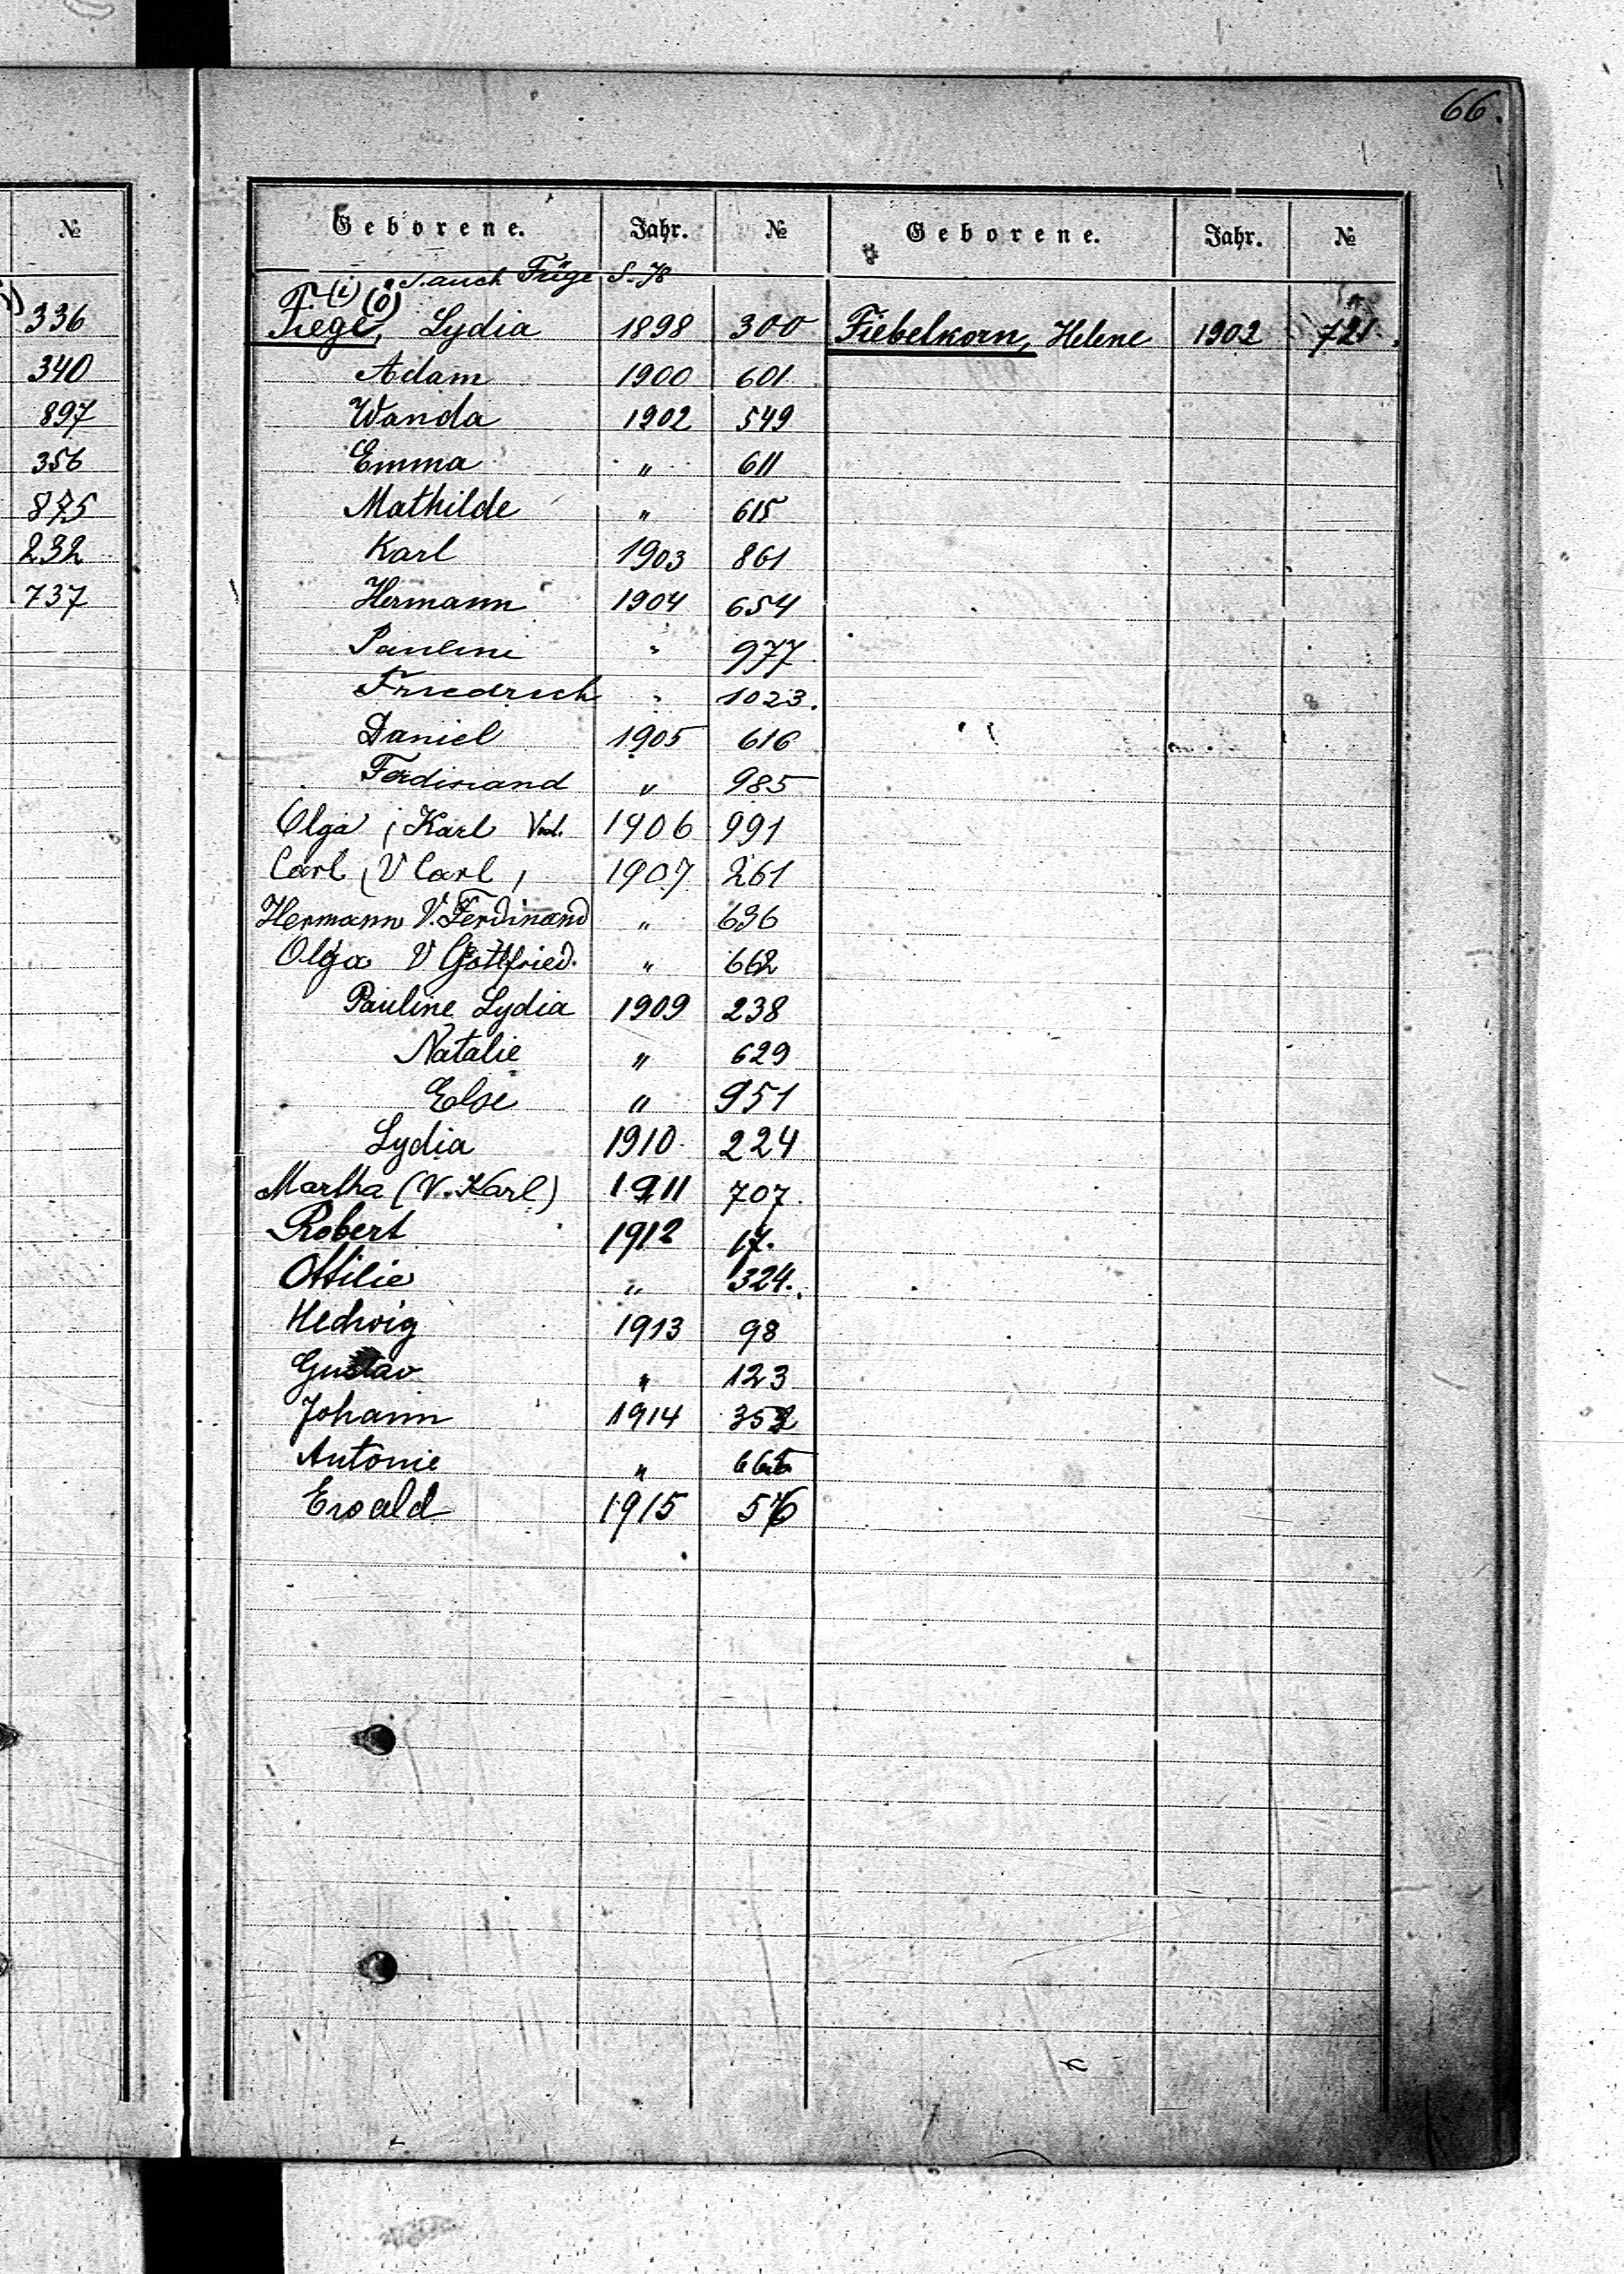 66.
№
336
340
897
356
875
232
737
Geborene. Jahr. №
s. auch Füge S. 78
(i) (ö)
Fiege, Lydia 1898 300
Adam 1900 601
Wanda 1902 549
Emma " 611
Mathilde " 615
Karl 1903 861
Hermann 1904 654
Pauline " 977
Friedrich " 1023.
Daniel 1905 616
Ferdinand " 985
Olga (Karl Vat. 1906 991
Carl (V Carl) 1907 261
Hermann V. Ferdinand " 636
Olga V Gottfried. " 662
Pauline Lydia 1909 238
Natalie " 629
Else " 951
Lydia 1910 224
Martha (V. Karl) 1911 707.
Robert 1912 17.
Ottilie " 324.
Hedwig 1913 98
Gustav " 123
Johann 1914 352
Antonie " 665
Ewald 1915 576
Geborene. Jahr. №
Fiebelkorn, Helene 1902 721.